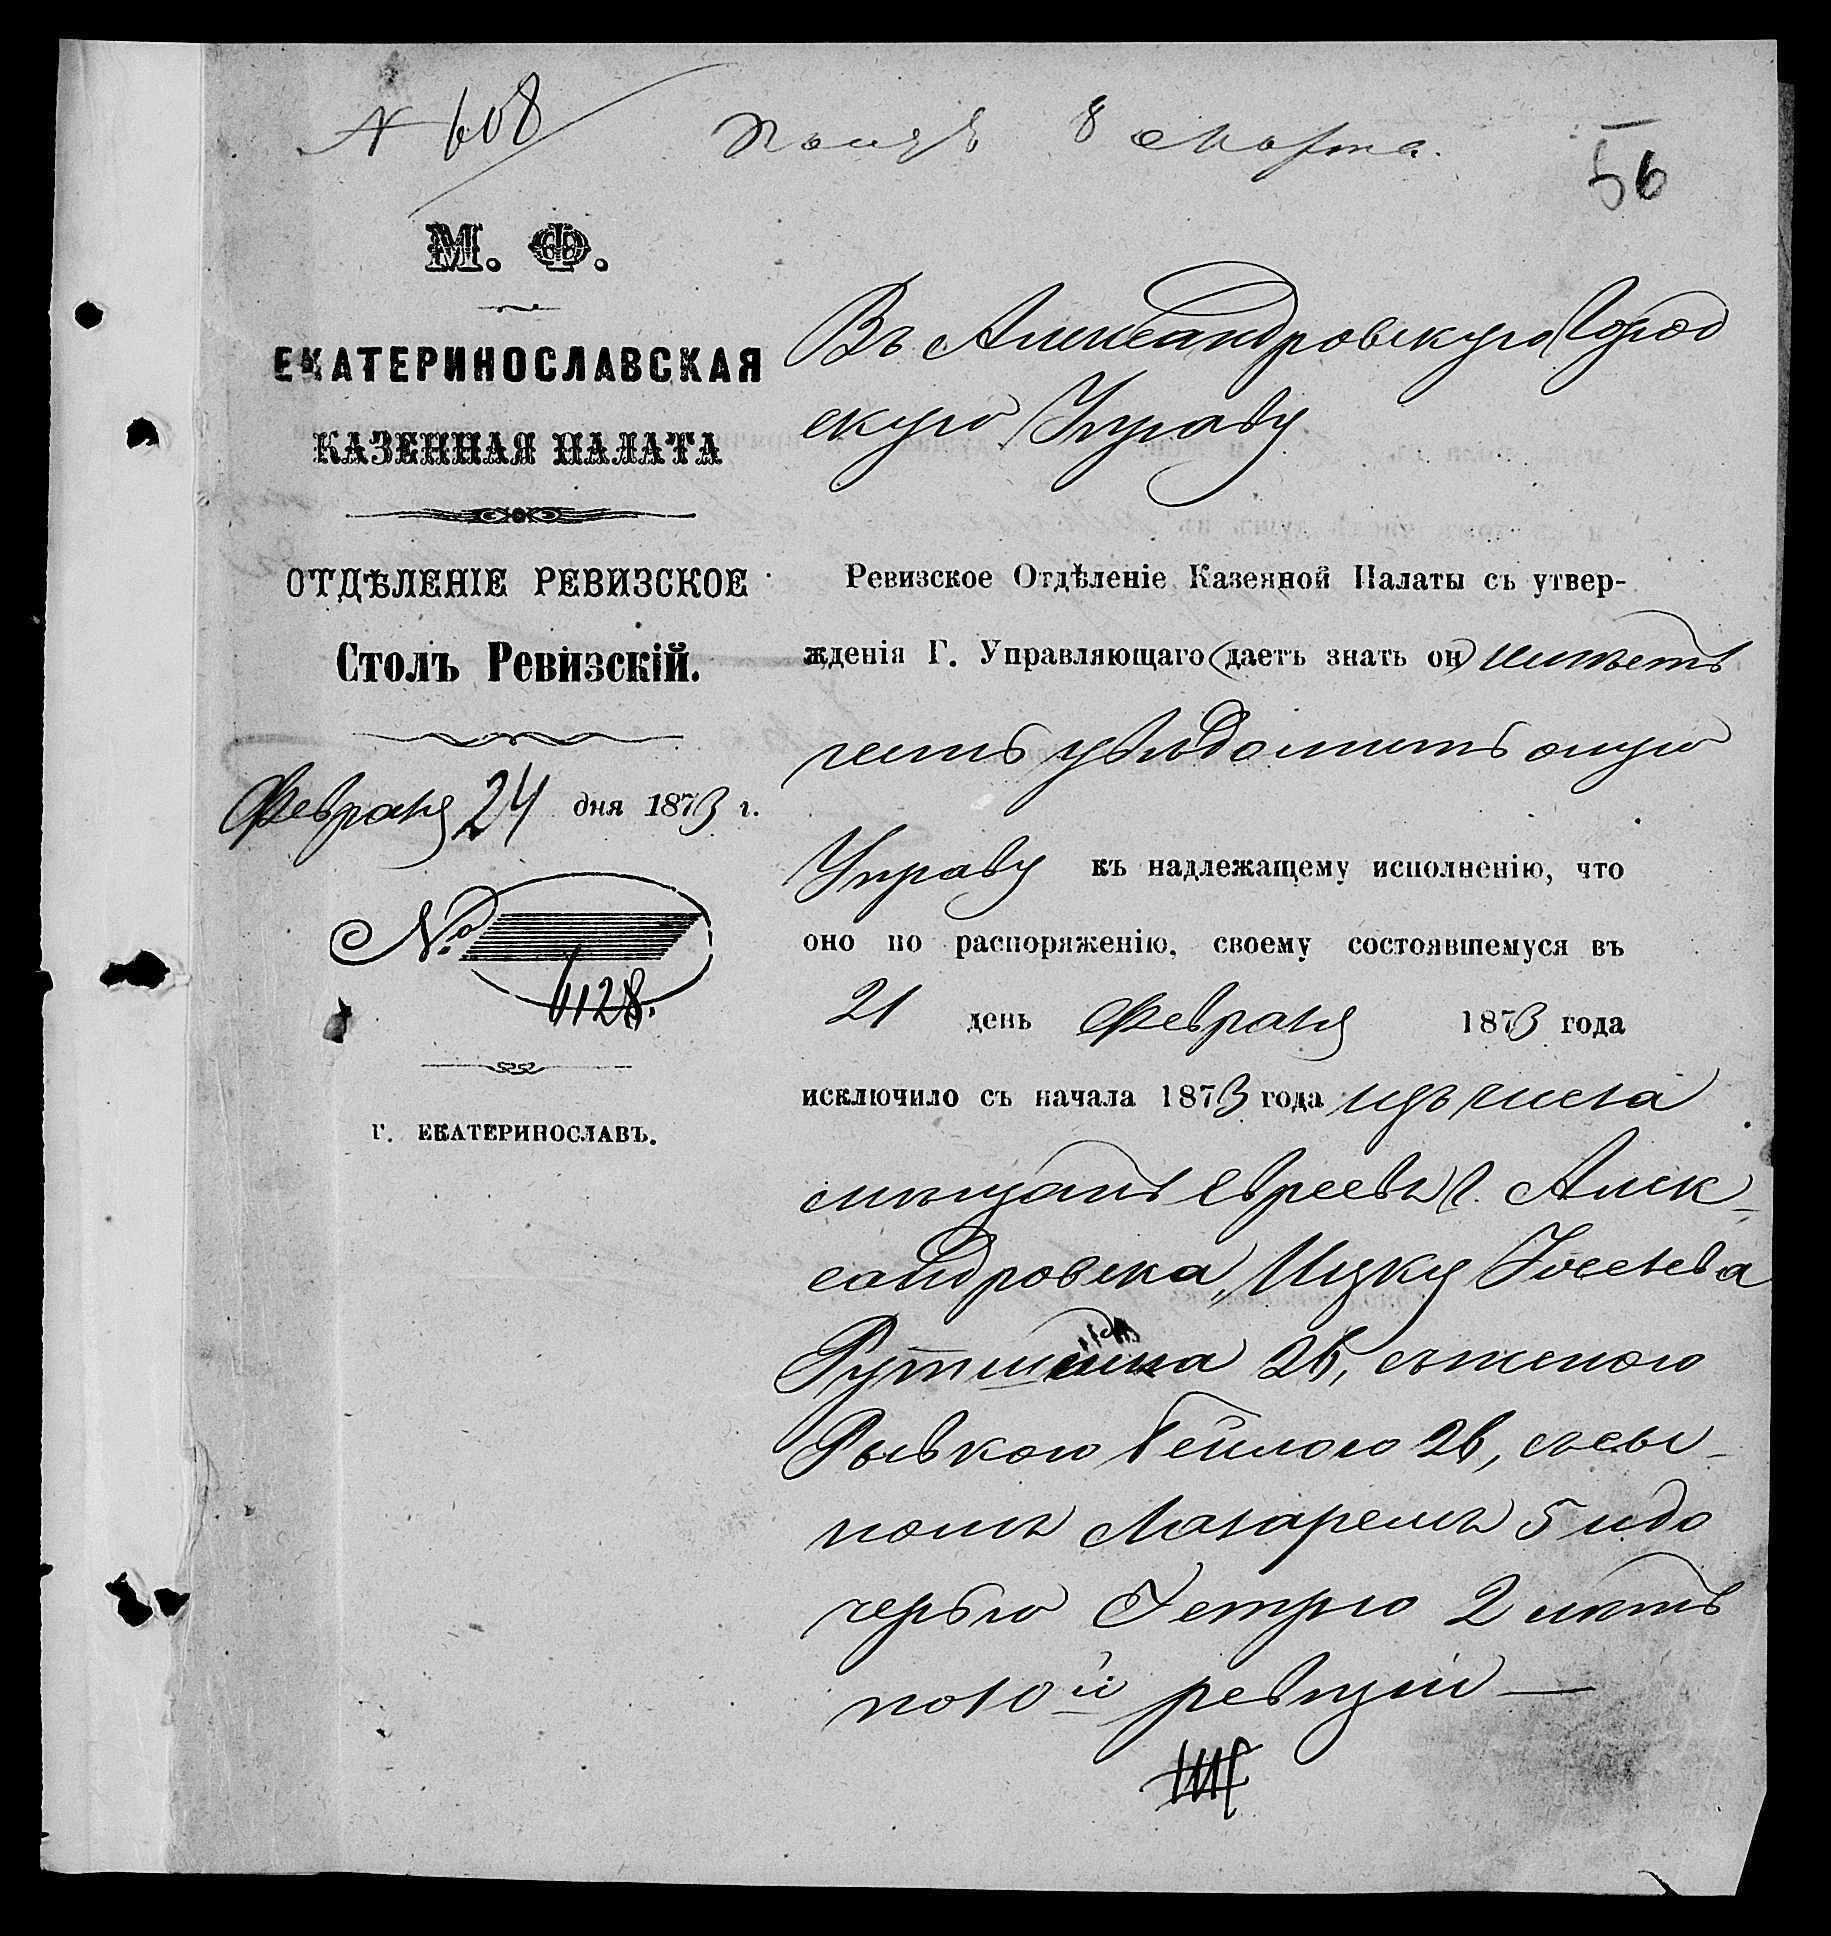 N 608 Получ 8 Марта.
56
М. Ф.
ЕКАТЕРИНОСЛАВСКАЯ
КАЗЕННАЯ ПАЛАТА
ОТДѢЛЕНІЕ РЕВИЗСКОЕ
Столъ Ревизскій.
Февраля 24 дня 1873 г.
№
4128.
Г. ЕКАТЕРИНОСЛАВЪ.
Въ Александровскую Город
скую Управу
Ревизское Отдѣленіе Казенной Палаты съ утвер-
жденія Г. Управляющаго (даетъ знать он) имѣетъ
честь увѣдомить оную
Управу къ надлежащему исполненію, что
оно по распоряженію, своему состоявшемуся въ
21 день Февраля 1873 года
исключило съ начала 1873 года изъ числа
мѣщанъ евреевъ г. Алек-
сандровска, Ицку Іоселева
26, съ женою
Рывкою Бейлою 26, съ сы-
номъ Лазаремъ 5 и до
черью 2 лѣтъ
по 10й ревизіи —